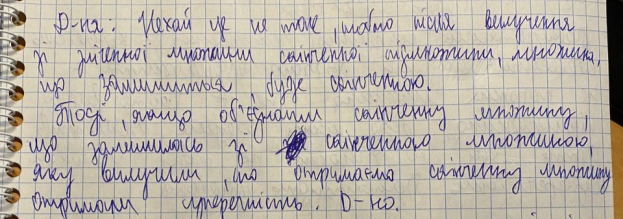 Д-ня: Нехай це не так, тобто після вилучення
зі зліченної множини скінченної підмножини, множина,
що залишиться, буде скінченною.
Тоді, якщо об'єднати скінченну множину,
що залишилась зі скінченною множиною,
яку вилучили, то отримаємо скінченну множину
отримали суперечність. Д-но.